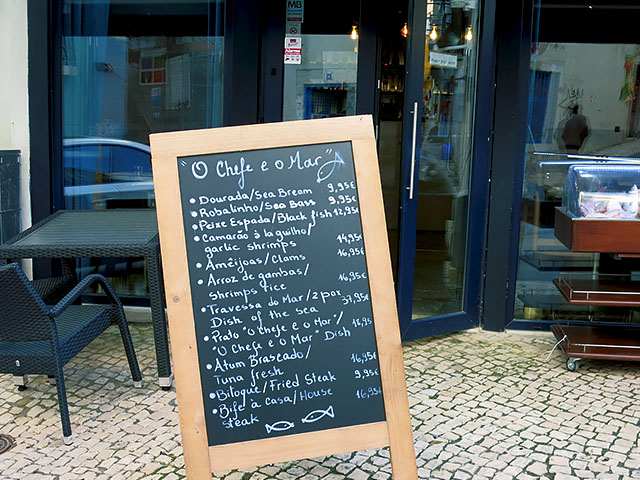 MB
"O Chefe e o Mar"
• Dourada/Sea Bream 9,95€
• Robalinho/Sea Bass 9,95€
• Peixe Espada/Black fish 12,95€
• Camarão à la guilho/
garlic shrimps 14,95€
• Amêijoas/Clams 16,95€
• Arroz de gambas/
shrimps rice 16,95€
• Travessa do Mar/2 pax
Dish of the sea 37,95€
• Prato "O Chefe e o Mar"/
"O Chefe e o Mar" Dish 18,95
• Atum Braseado/
Tuna fresh 16,95€
• Bitoque/Fried Steak 9,95€
• Bife à casa/House
steak 16,95€